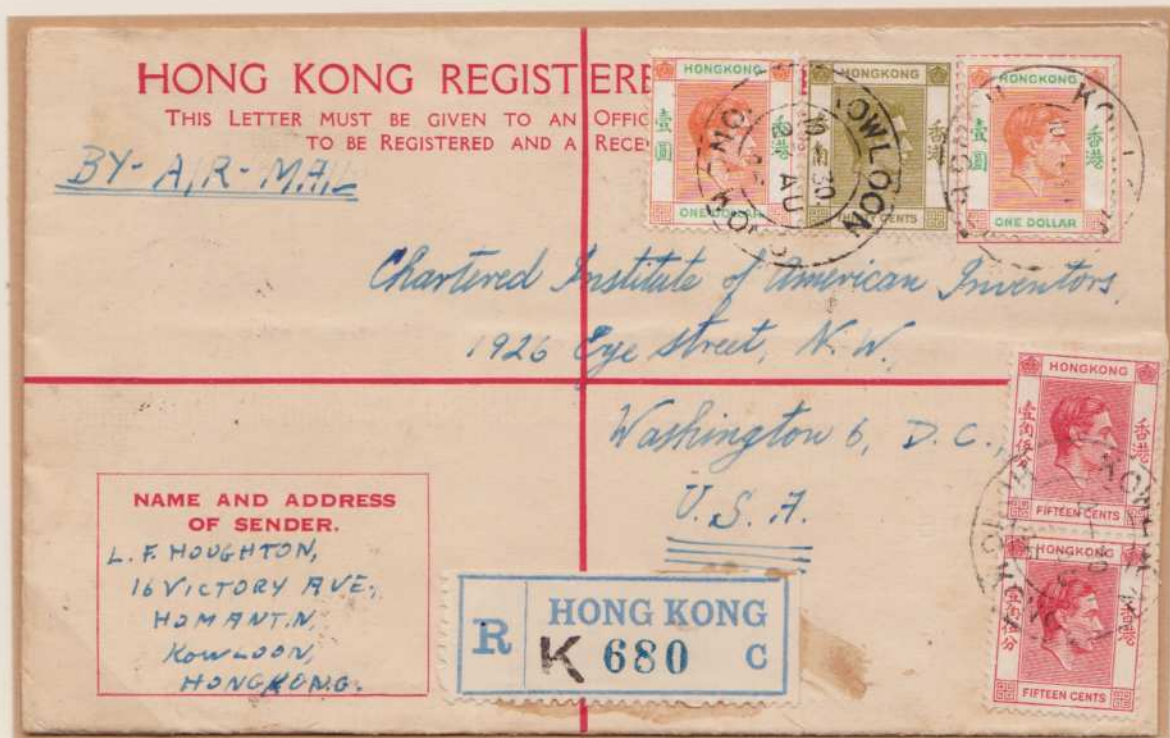 HONG KONG REGISTERE
THIS LETTER MUST BE GIVEN TO AN OFFIC
TO BE REGISTERED AND A RECE
BY-AIR-MAIL
HONGKONG
壹圓
香港
ONE DOLLAR
HONGKONG
香港
THIRTY CENTS
HONGKONG
壹圓
香港
ONE DOLLAR
KOWLOON
HONG KONG
10 30
AU
Chartered Institute of American Inventors,
1926 Eye Street, N.W.
Washington 6, D.C.,
U.S.A.
HONGKONG
壹角伍分
香港
FIFTEEN CENTS
HONGKONG
壹角伍分
香港
FIFTEEN CENTS
NAME AND ADDRESS
OF SENDER.
L. F. HOUGHTON,
16 VICTORY AVE,
HOMANTIN
KOWLOON,
HONGKONG.
R HONG KONG
K 680 C